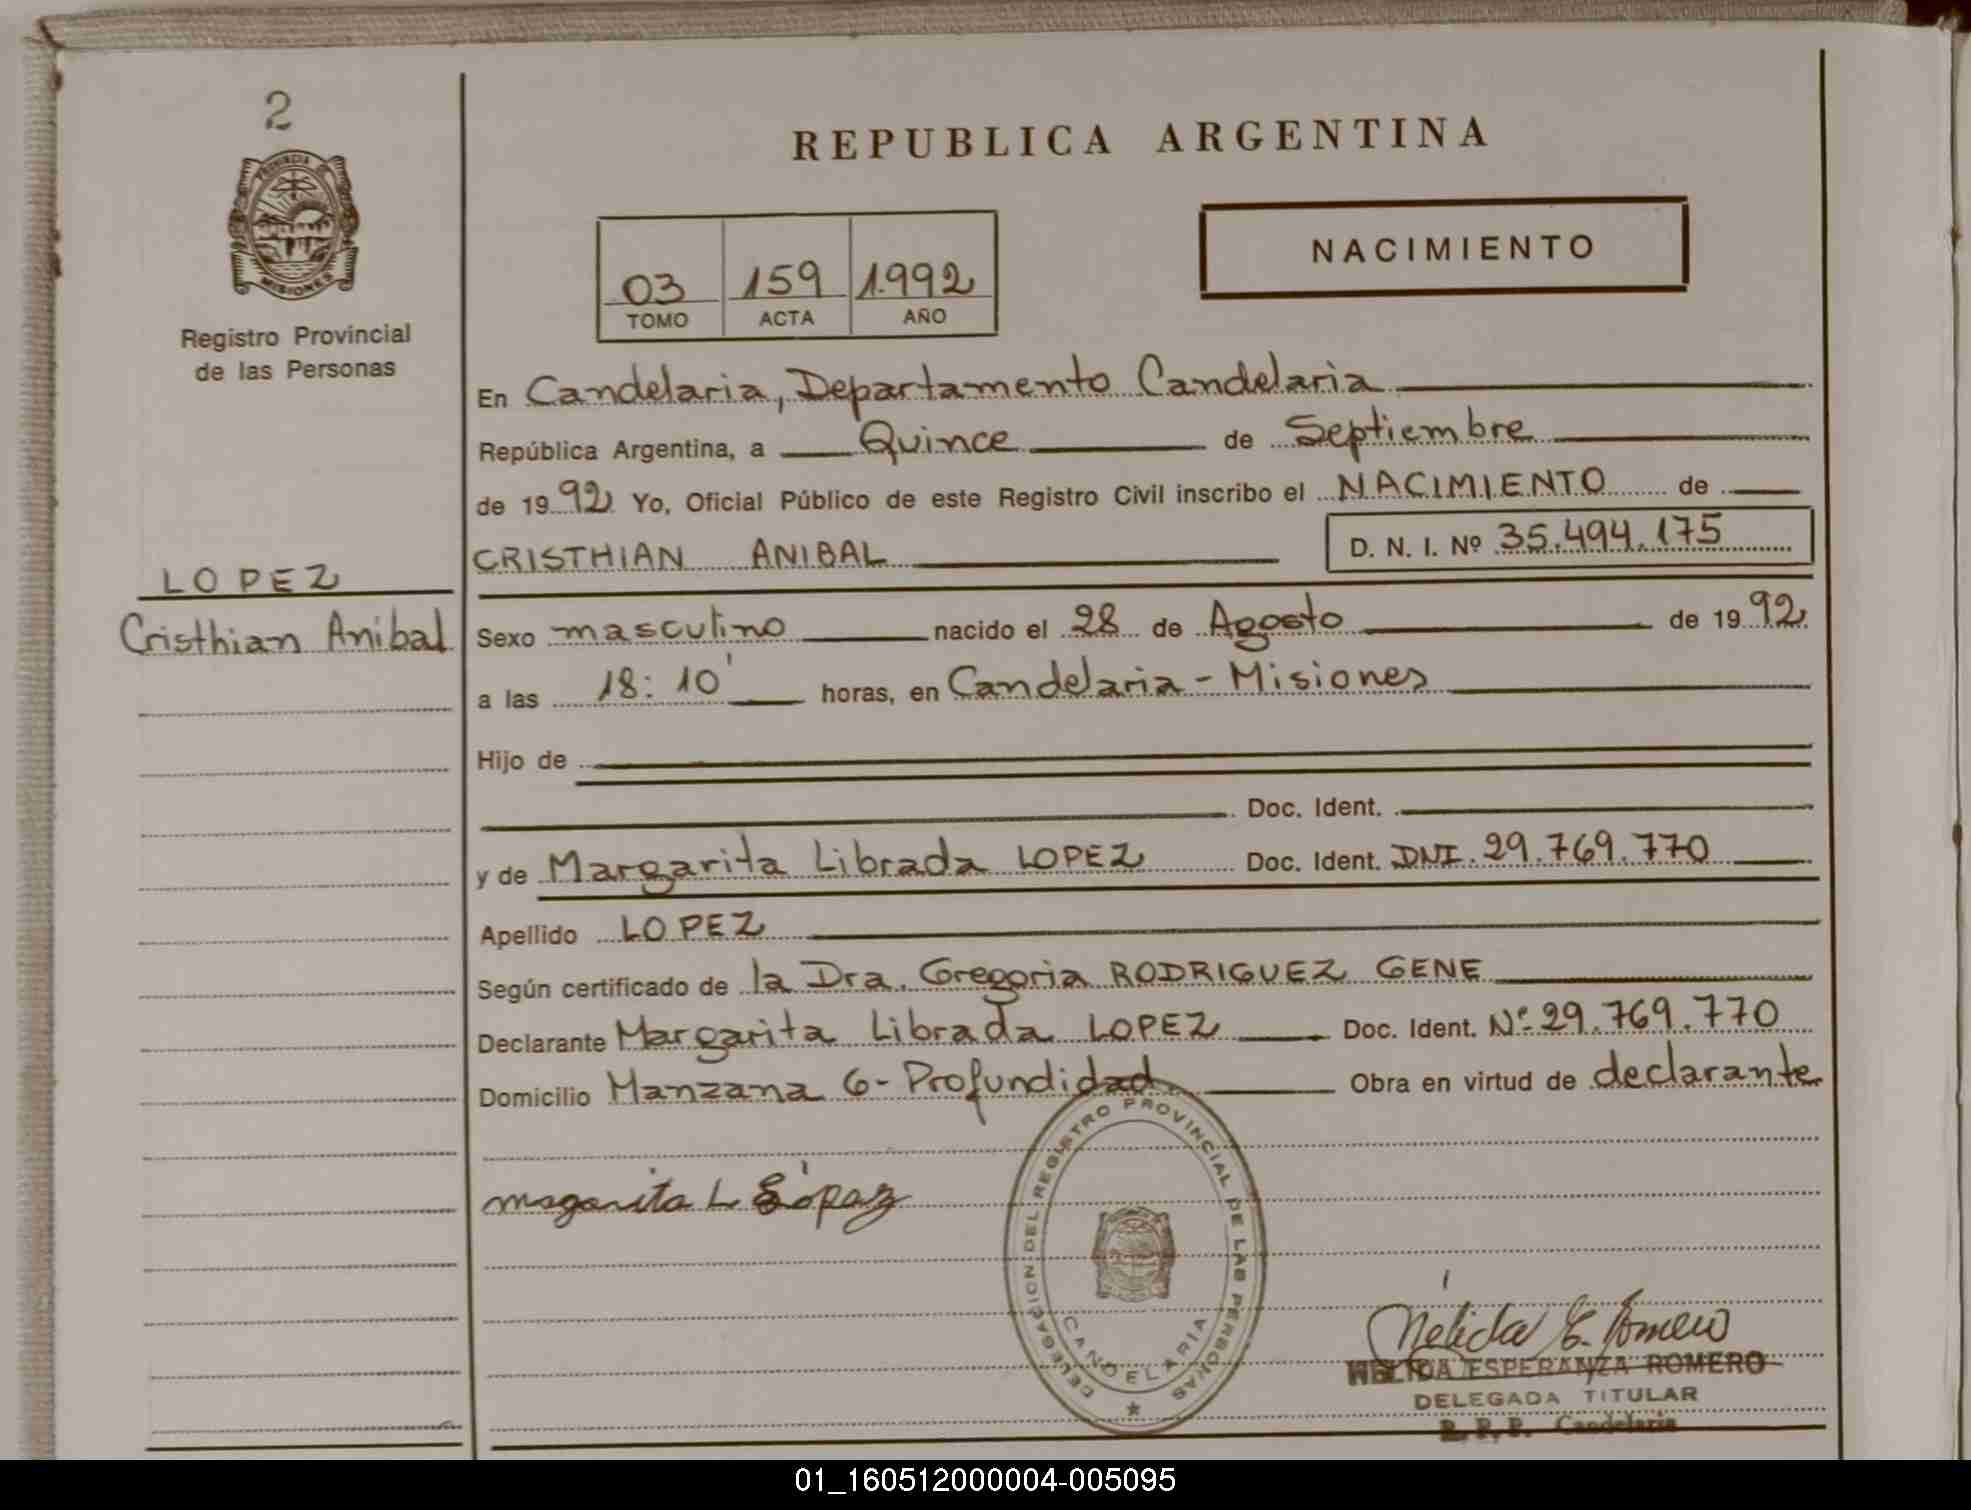 2
PROVINCIA DE
MISIONES
Registro Provincial
de las Personas
LOPEZ
Cristhian Anibal
REPUBLICA ARGENTINA
NACIMIENTO
03 159 1.992
TOMO ACTA AÑO
En Candelaria, Departamento Candelaria
República Argentina, a Quince de Septiembre
de 1992 Yo, Oficial Público de este Registro Civil inscribo el NACIMIENTO de
CRISTHIAN ANIBAL D. N. I. Nº 35.494.175
Sexo masculino nacido el 28 de Agosto de 1992
a las 18:10' horas, en Candelaria - Misiones
Hijo de
Doc. Ident.
y de Margarita Librada LOPEZ Doc. Ident. DNI. 29.769.770
Apellido LOPEZ
Según certificado de la Dra. Gregoria RODRIGUEZ GENE
Declarante Margarita Librada LOPEZ Doc. Ident. Nº 29.769.770
Domicilio Manzana 6 - Profundidad Obra en virtud de declarante
magarita L Lópaz
DELEGACION DEL REGISTRO PROVINCIAL DE LAS PERSONAS
CANDELARIA
Nélida E. Romero
NELIDA ESPERANZA ROMERO
DELEGADA TITULAR
R. P. P. Candelaria
01_160512000004-005095